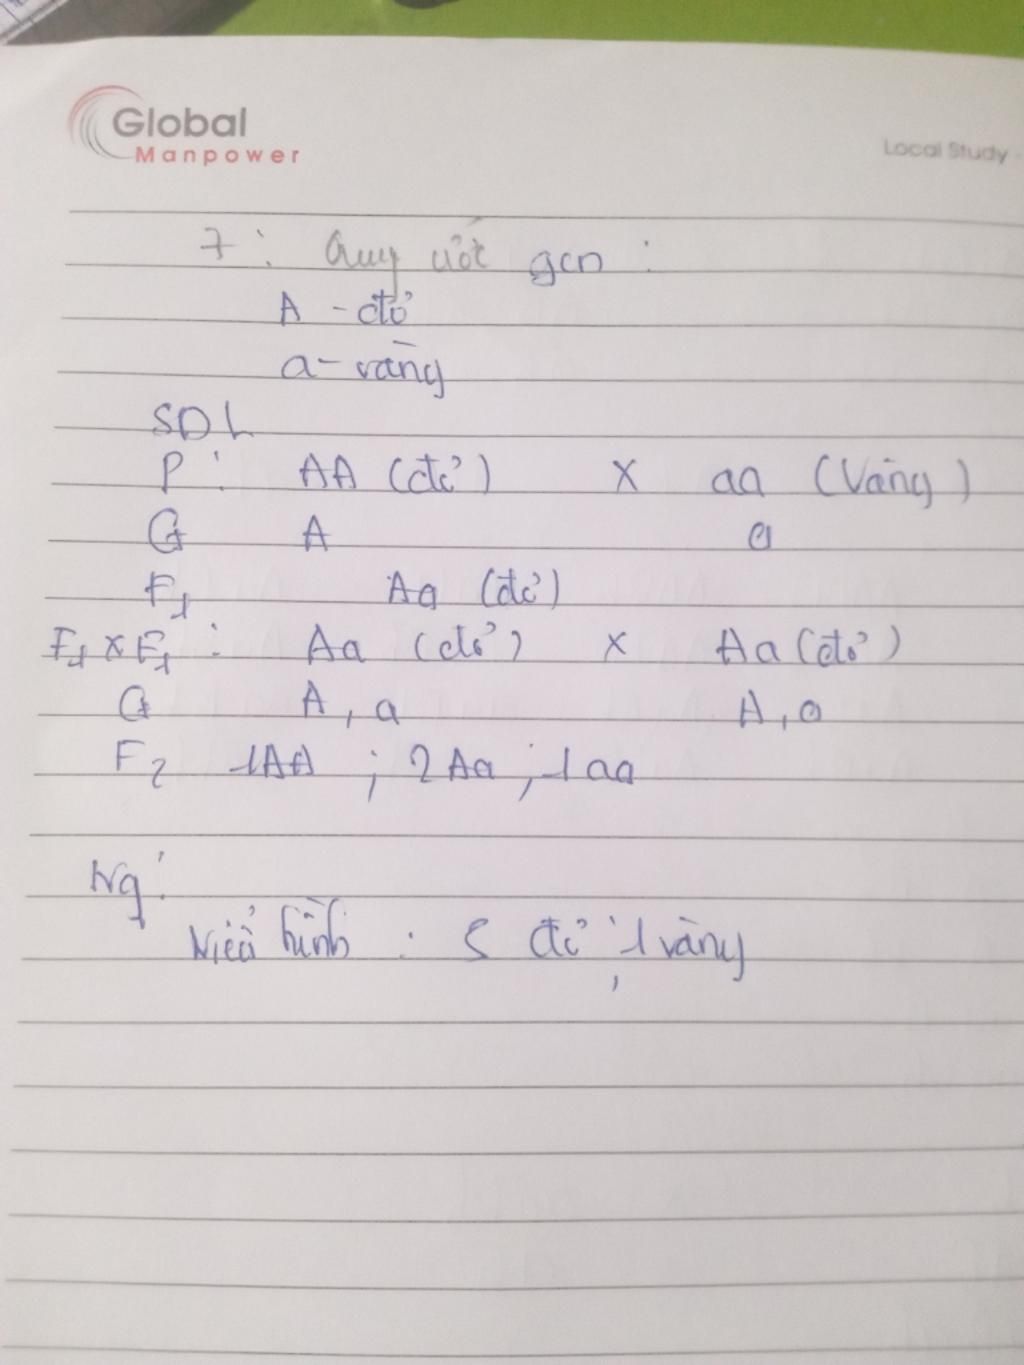 Global
Manpower
Local Study
7: Quy ước gen:
A - đỏ
a - vàng
SDL
P: AA (đỏ) x aa (Vàng)
G A a
F1 Aa (đỏ)
F1 x F1: Aa (đỏ) x Aa (đỏ)
G A, a A, a
F2 1AA ; 2Aa ; 1aa
Kg:
Kiểu hình : 3 đỏ ; 1 vàng